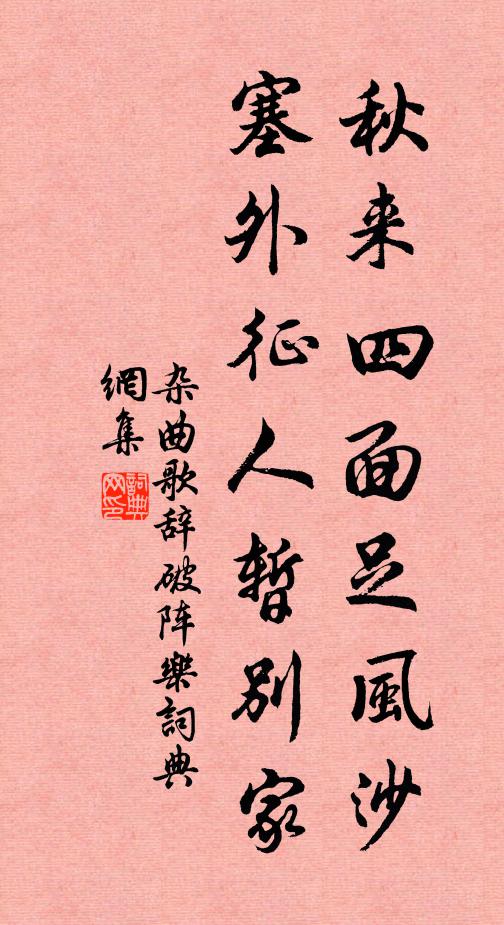 秋来四面足風沙
塞外征人暫别家
杂曲歌辞破阵樂詞典
網集
詞典
网印